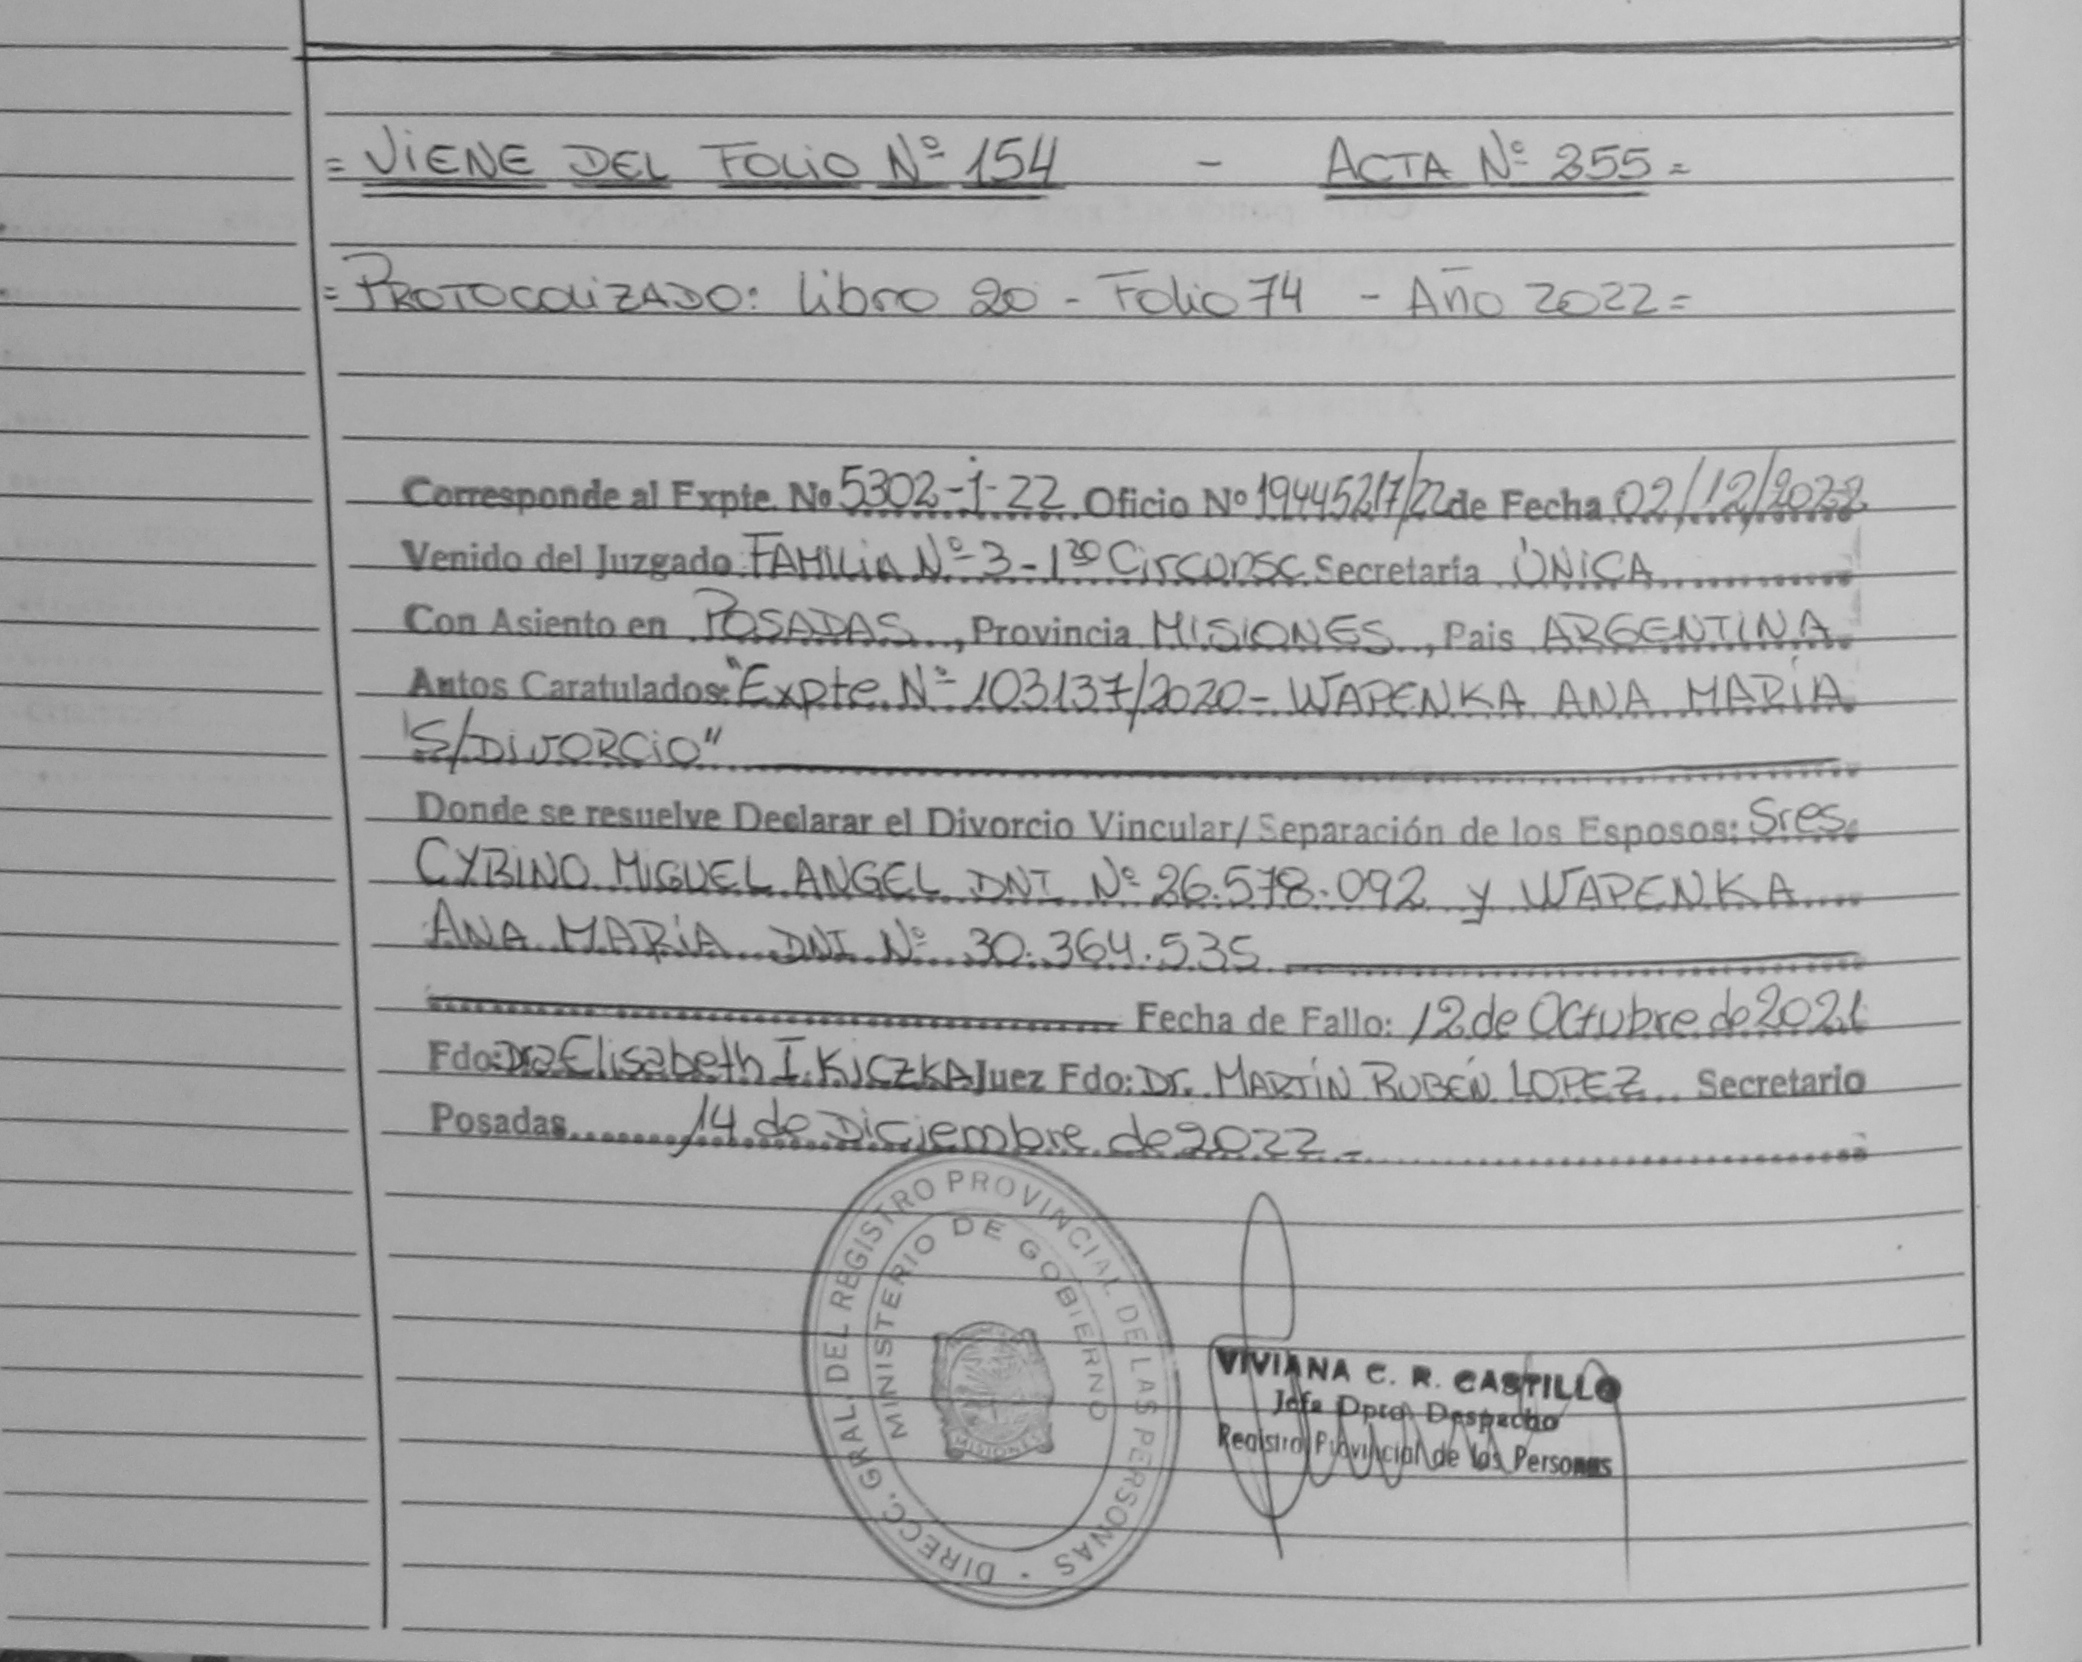 = VIENE DEL FOLIO Nº 154 - ACTA Nº 255 =
= PROTOCOLIZADO: Libro 20 - Folio 74 - Año 2022 =
Corresponde al Expte. Nº 5302-i-22 Oficio Nº 19445217/22 de Fecha 02/12/2022
Venido del Juzgado FAMILIA Nº 3 - 1ra Circunsc. Secretaría ÚNICA
Con Asiento en POSADAS, Provincia MISIONES, Pais ARGENTINA
Autos Caratulados: "Expte. Nº 103137/2020 - WAPENKA ANA MARÍA
S/DIVORCIO"
Donde se resuelve Declarar el Divorcio Vincular/Separación de los Esposos: Sres.
CYBINO MIGUEL ANGEL DNI Nº 26.578.092 y WAPENKA
ANA MARÍA DNI Nº 30.364.535
Fecha de Fallo: 12 de Octubre de 2021
Fdo: Dra Elisabeth I. KICZKA Juez Fdo: Dr. MARTÍN RUBÉN LOPEZ Secretario
Posadas 14 de Diciembre de 2022 -
DIRECC. GRAL. DEL REGISTRO PROVINCIAL DE LAS PERSONAS
MINISTERIO DE GOBIERNO
MISIONES
VIVIANA C. R. CASTILLO
Jefa Dpto. Despacho
Registro Provincial de las Personas